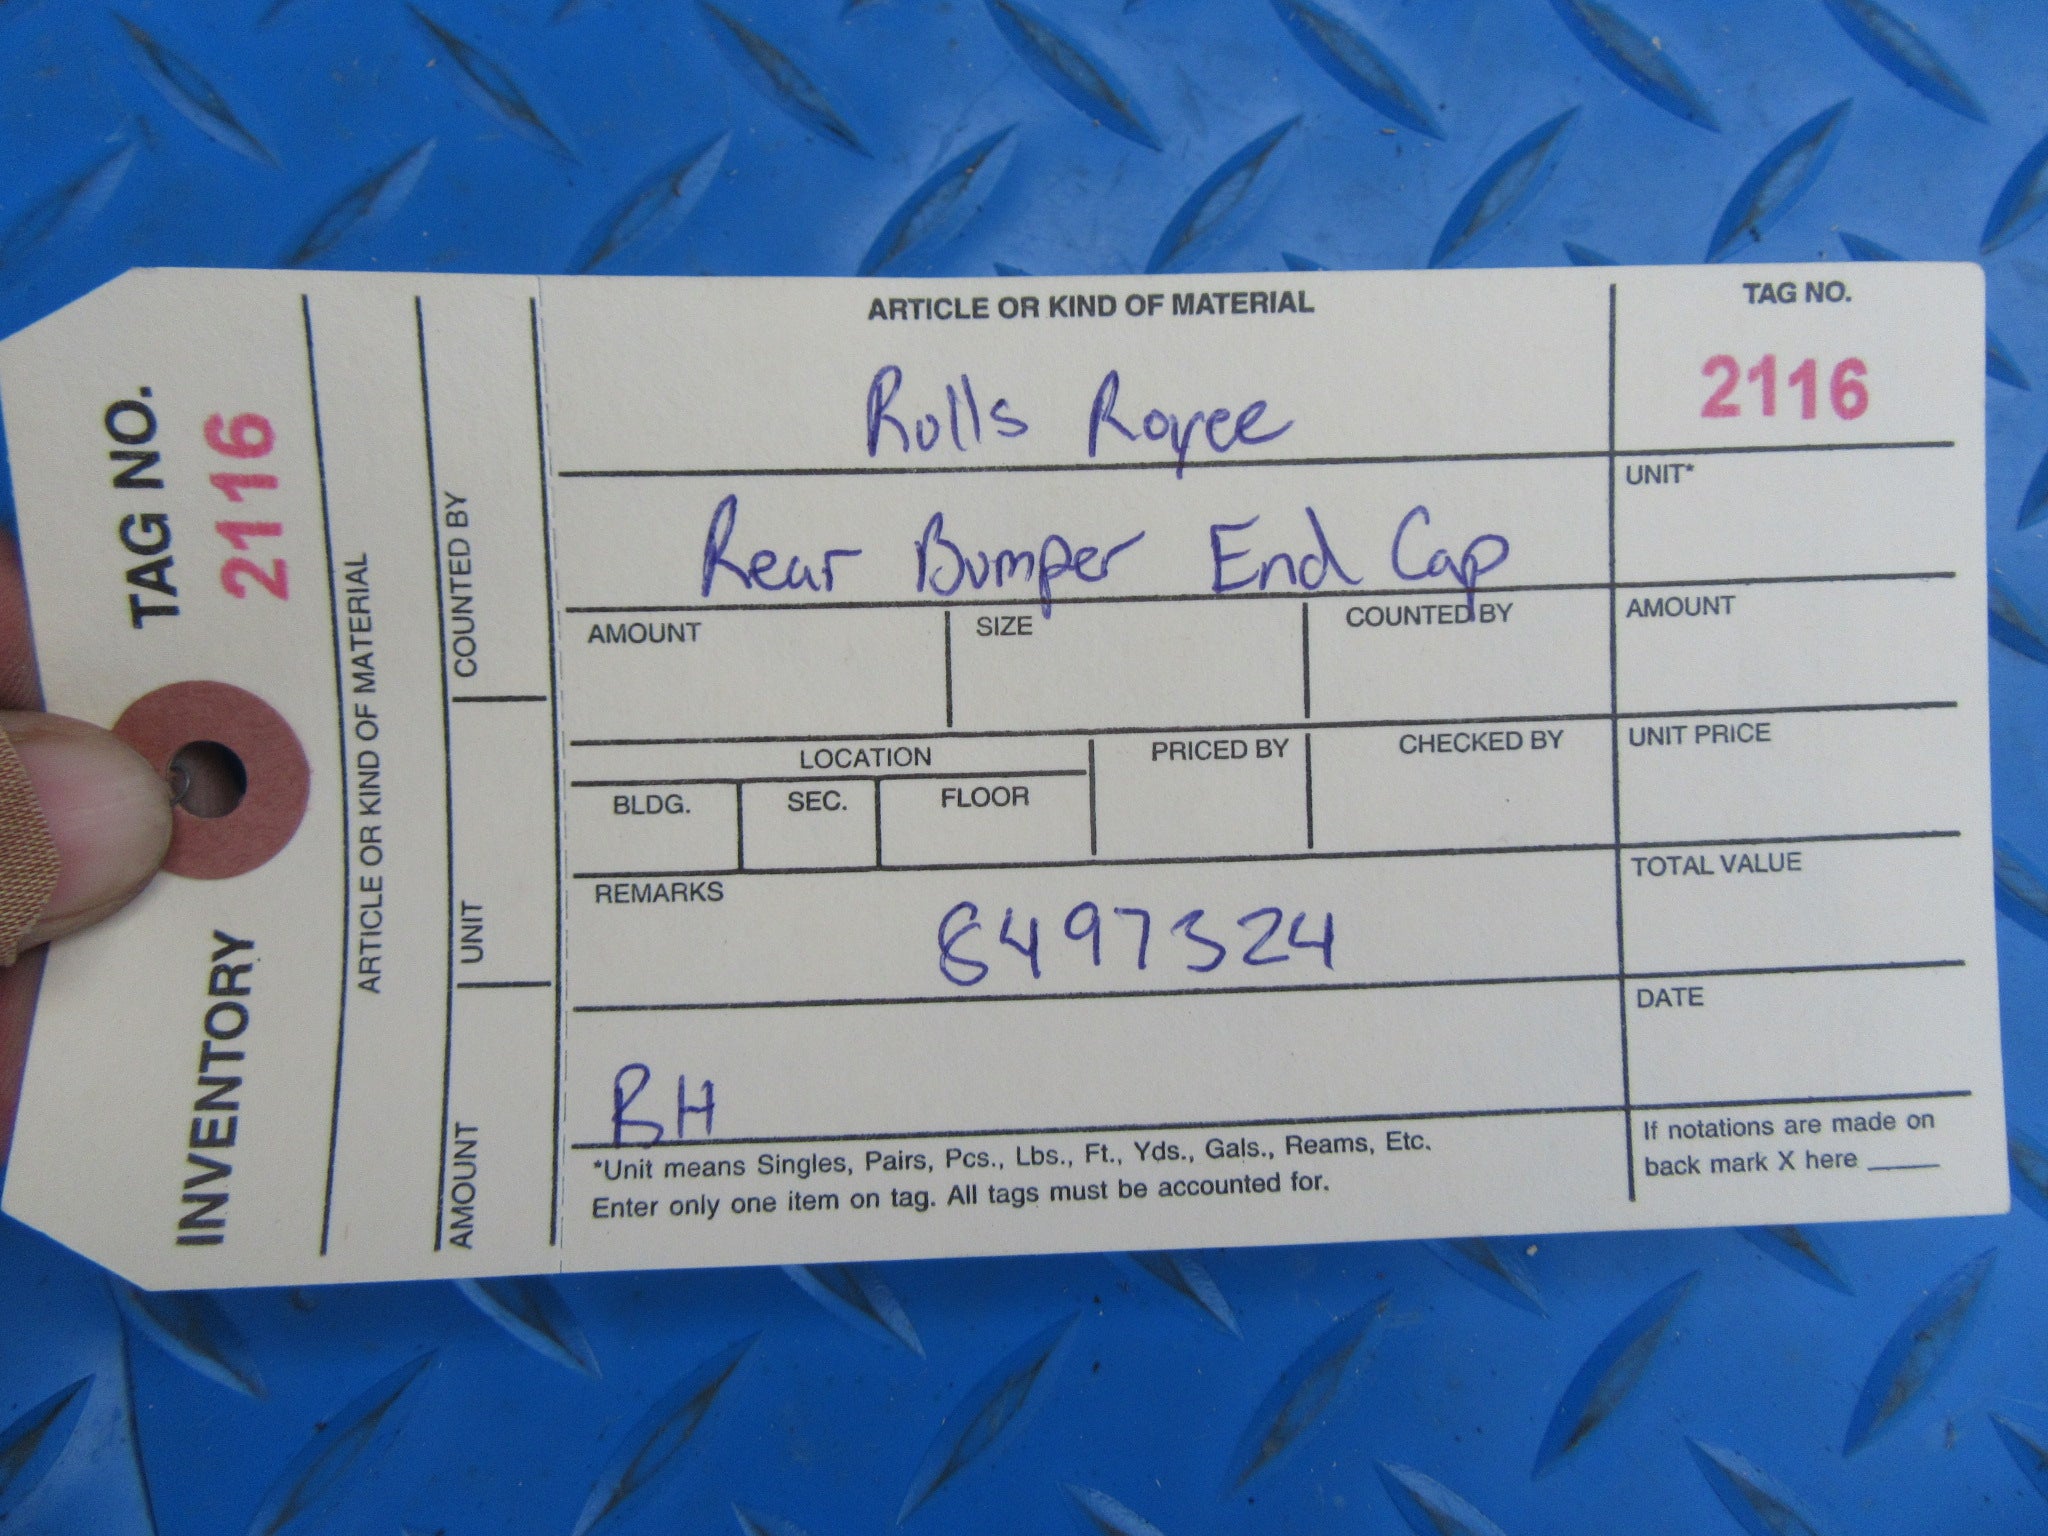 INVENTORY TAG NO.
2116
ARTICLE OR KIND OF MATERIAL
AMOUNT UNIT COUNTED BY
ARTICLE OR KIND OF MATERIAL
Rolls Royce
Rear Bumper End Cap
AMOUNT SIZE COUNTED BY
LOCATION PRICED BY CHECKED BY
BLDG. SEC. FLOOR
REMARKS
8497324
BH
*Unit means Singles, Pairs, Pcs., Lbs., Ft., Yds., Gals., Reams, Etc.
Enter only one item on tag. All tags must be accounted for.
TAG NO.
2116
UNIT*
AMOUNT
UNIT PRICE
TOTAL VALUE
DATE
If notations are made on
back mark X here ____